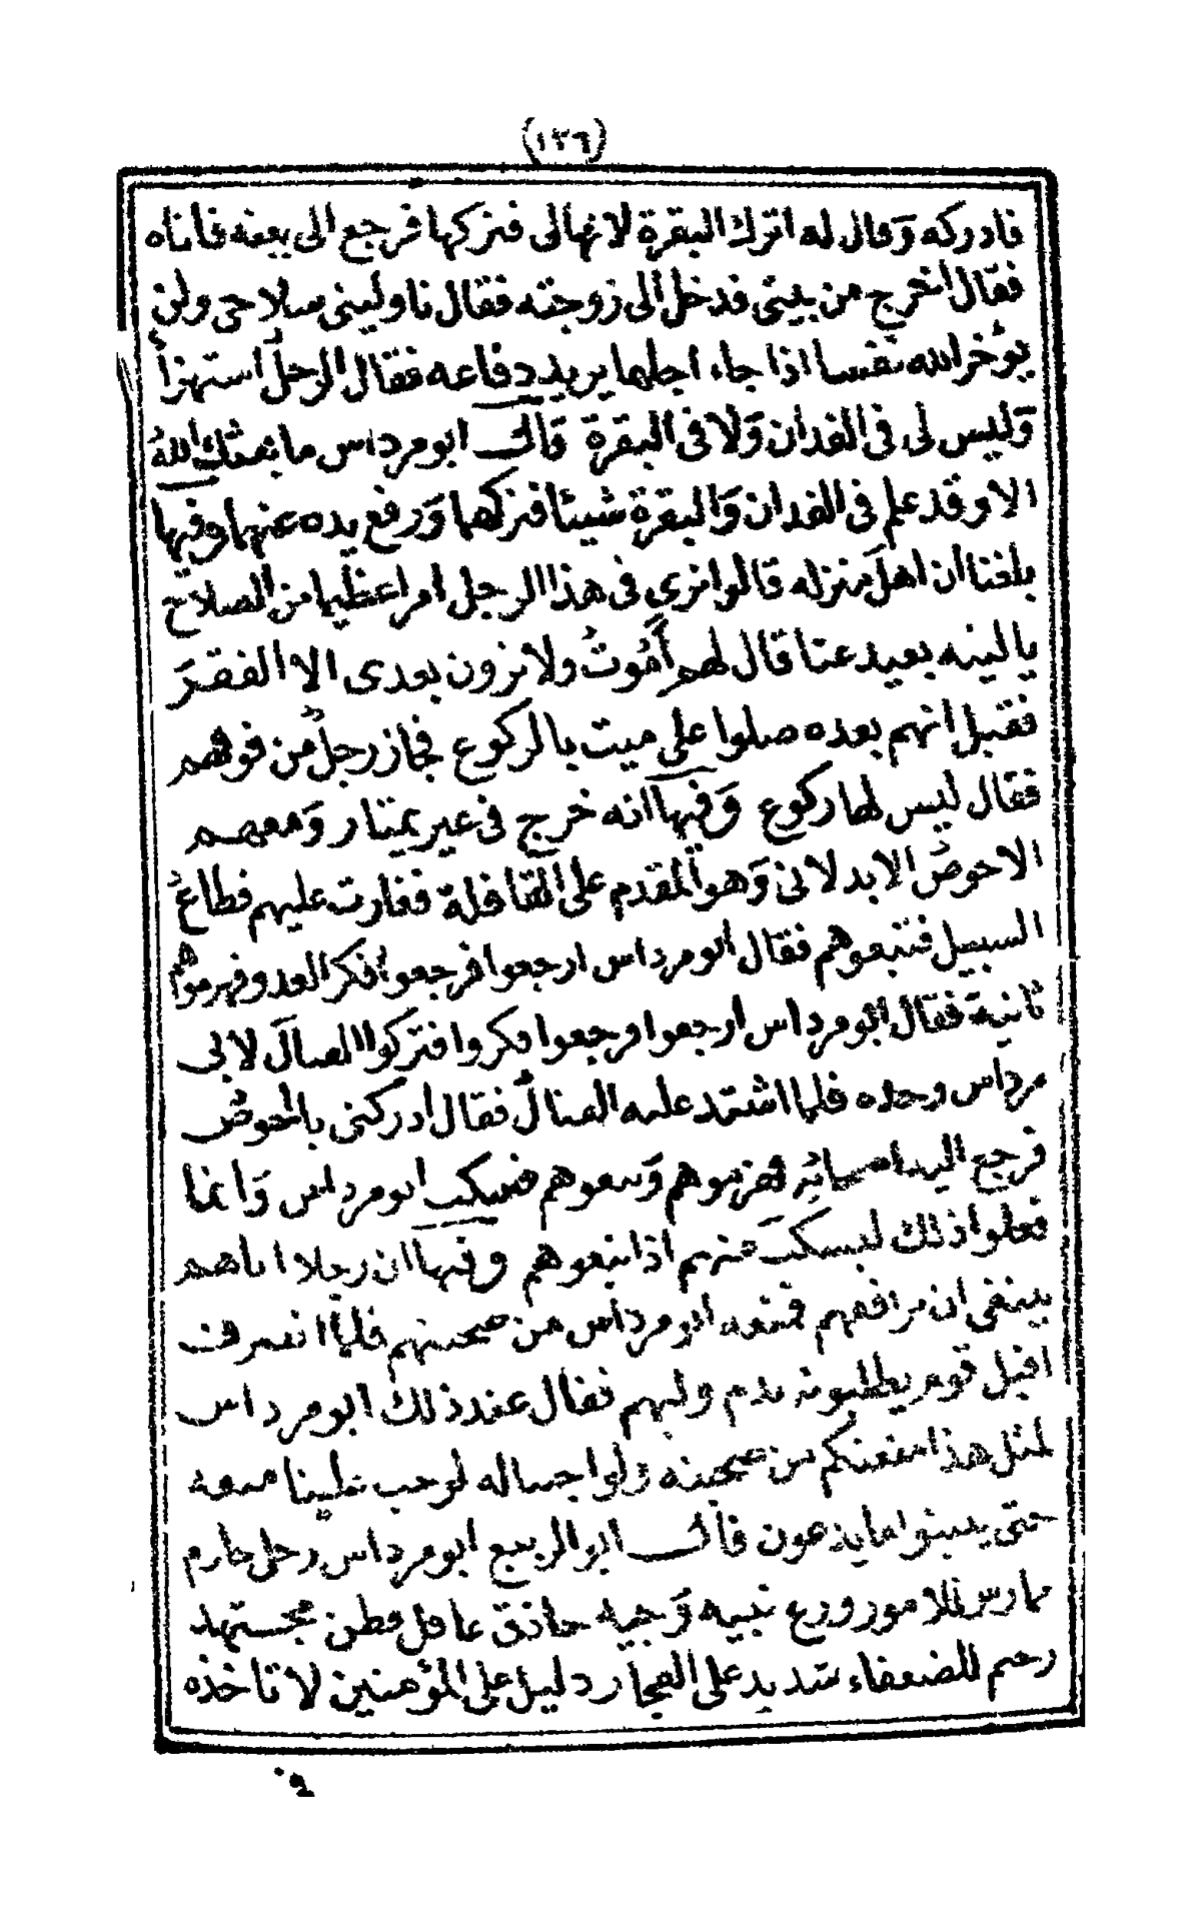 (١٣٦)
فادركه وقال له اترك البقرة لانها لى فتركها فرجع الى بيته فاتاه
فقال اخرج من بيتى فدخل الى زوجته فقال ناولينى سلاحى ولن
يؤخر الله نفسا اذا جاء اجلها يريد دفاعه فقال الرجل استهزأ
وليس لى فى الفدان ولا فى البقرة قال ابو مرداس ما بعثك الله
الا وقد علم فى الفدان والبقرة شيئا فتركهما ورفع يده عنهما وفيها
بلغنا ان اهل منزله قالوا نرى فى هذا الرجل امرا عظيما من الصلاح
ياليته بعيد عنا قال لهم أموت ولا ترون بعدى الا الفقر
فقيل انهم بعده صلوا على ميت بالركوع فجاز رجل من فوقهم
فقال ليس لها ركوع وفيها انه خرج فى عير يمتار ومعهم
الاحوص الابدلانى وهو المقدم على القافلة فغارت عليهم قطاع
السبيل فتبعوهم فقال ابو مرداس ارجعوا فرجعوا فكر العدو فهزموهم
ثانية فقال ابو مرداس ارجعوا فرجعوا فكروا فتركوا القتال لابى
مرداس وحده فلما اشتد عليه القتال فقال ادركنى بالحوص
فرجع اليه اصحابه فهزموهم وتبعوهم فسكت ابو مرداس وانما
فعلوا ذلك ليسكت عنهم اذا تبعوهم وفيها ان رجلا اتاهم
يبتغى ان يرافقهم فمنعه ابو مرداس من صحبتهم فلما انصرف
اقبل قوم يطلبونه بدم وليهم فقال عند ذلك ابو مرداس
لمثل هذا منعتكم من صحبته ولو اجبنا له لوجب علينا منعه
حتى يبينوا ما يدعون قال ابو الربيع ابو مرداس رجل حازم
ممارس للامور ورع نبيه وجيه حاذق عاقل فطن مجتهد
رحيم للضعفاء شديد على الفجار دليل على المؤمنين لا تاخذه
فى